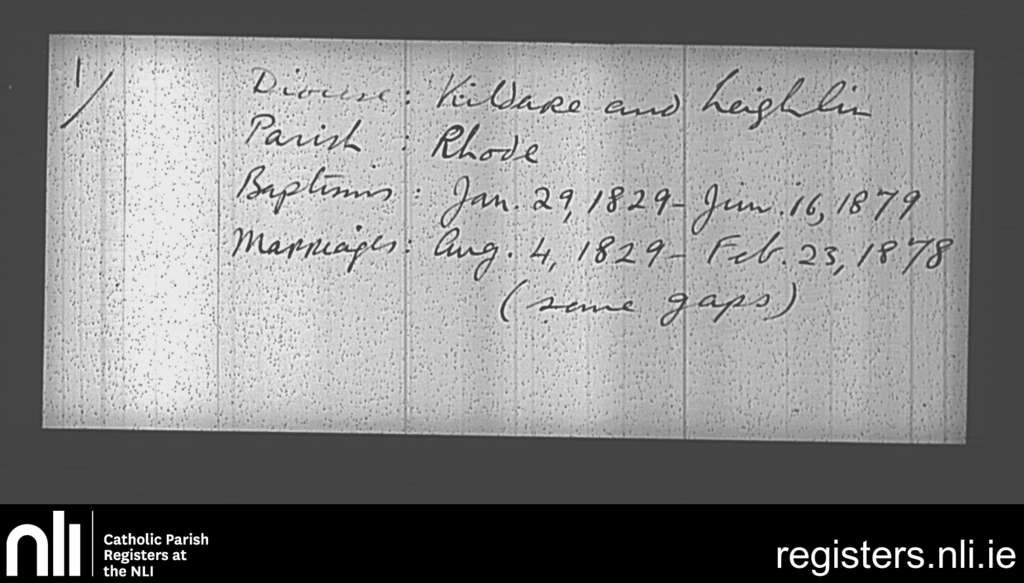 1/
Diocese : Kildare and Leighlin
Parish : Rhode
Baptisms : Jan. 29, 1829 - Jun. 16, 1879
Marriages : Aug. 4, 1829 - Feb. 23, 1878
(some gaps)
nli
Catholic Parish
Registers at
the NLI
registers.nli.ie